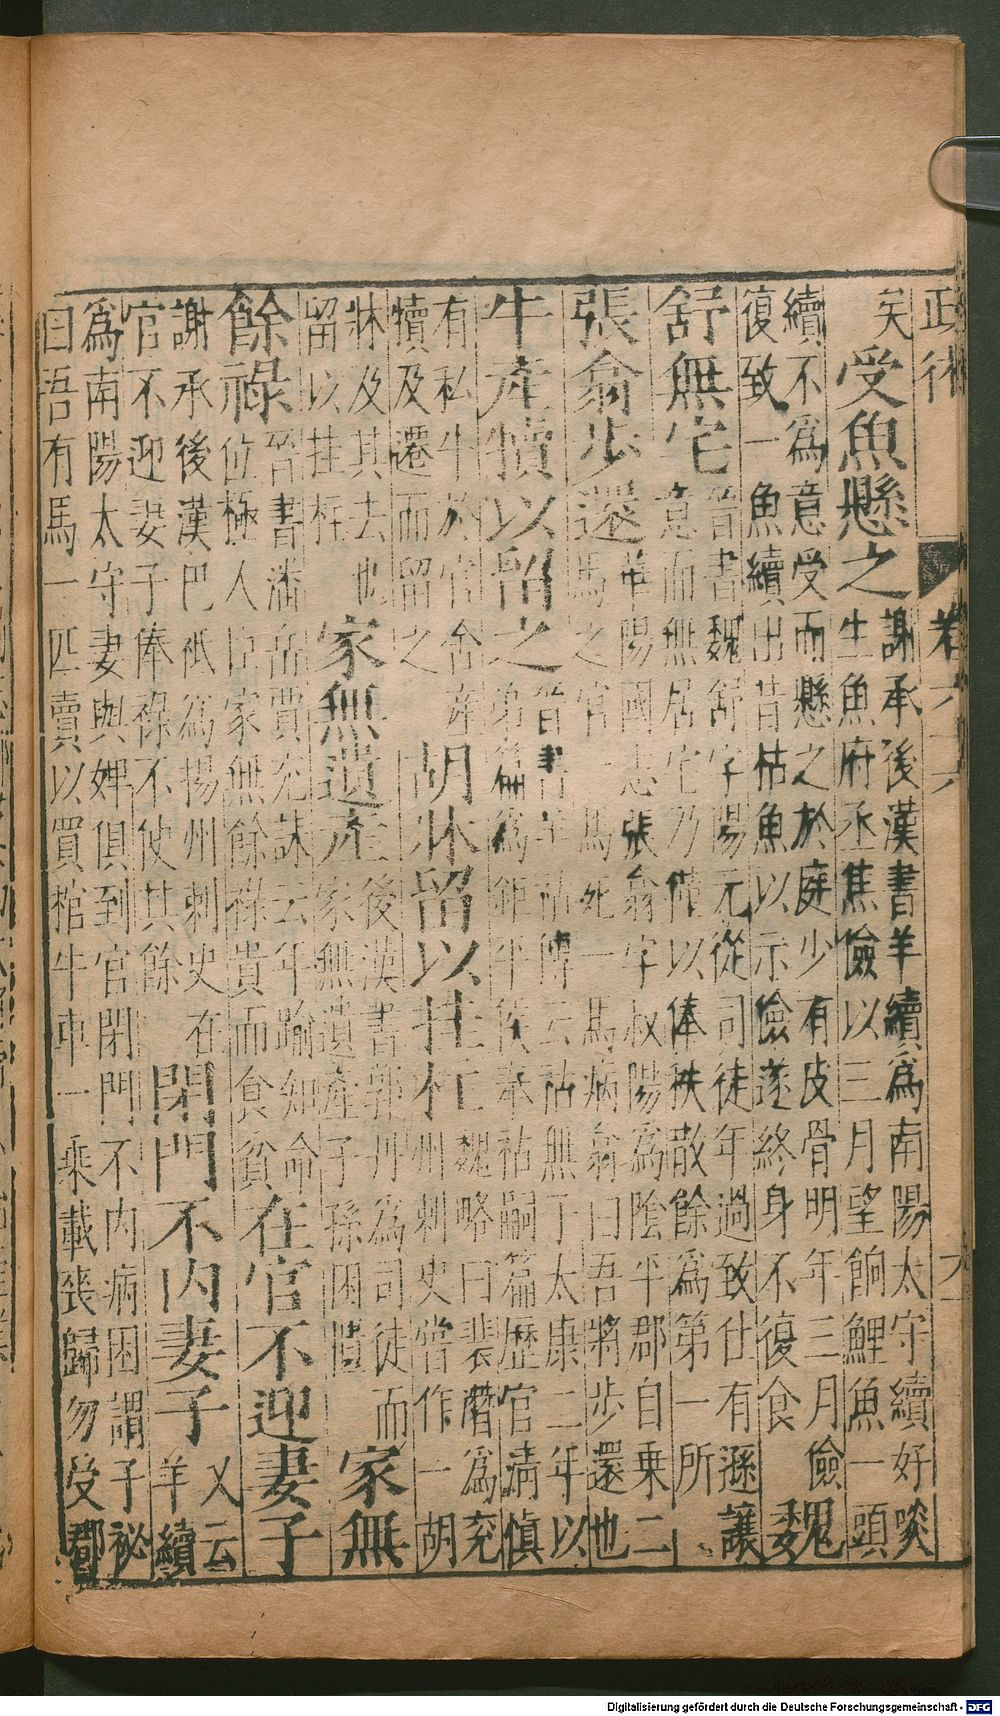 政術 卷六六 九
矣 受魚懸之 謝承後漢書羊續為南陽太守續好啖
生魚府丞焦儉以三月望餉鯉魚一頭
續不為意受而懸之於庭少有皮骨明年三月儉
復致一魚續出昔枯魚以示儉遂終身不復食 魏
舒無宅 晉書魏舒字陽元從司徒年過致仕有遜讓
意而無居宅乃俸以俸秩散餘為第一所
張翁步還 華陽國志張翁字叔陽為陰平郡自乘二
馬之官一馬死一馬病翁曰吾將步還也
牛產犢以留之 晉書羊祜傳云祜無子太康二年以
弟篇為鉅平侯奉祜嗣篇歷官清慎
有私牛於官舍產
犢及遷而留之 胡牀留以挂柱 魏略曰裴潛為兗
州刺史嘗作一胡
牀及其去也
留以挂柱 家無遺產 後漢書郭丹為司徒而
家無遺產子孫困匱 家無
餘祿 晉書潘岳賈充誄云年踰知命
位極人臣家無餘祿貴而食貧 在官不迎妻子
謝承後漢巴祇為揚州刺史在
官不迎妻子俸祿不使其餘 閉門不内妻子 又云
羊續
為南陽太守妻與婢俱到官閉門不内病困謂子祕
曰吾有馬一匹賣以買棺牛車一乘載喪歸勿受郡
Digitalisierung gefördert durch die Deutsche Forschungsgemeinschaft - DFG